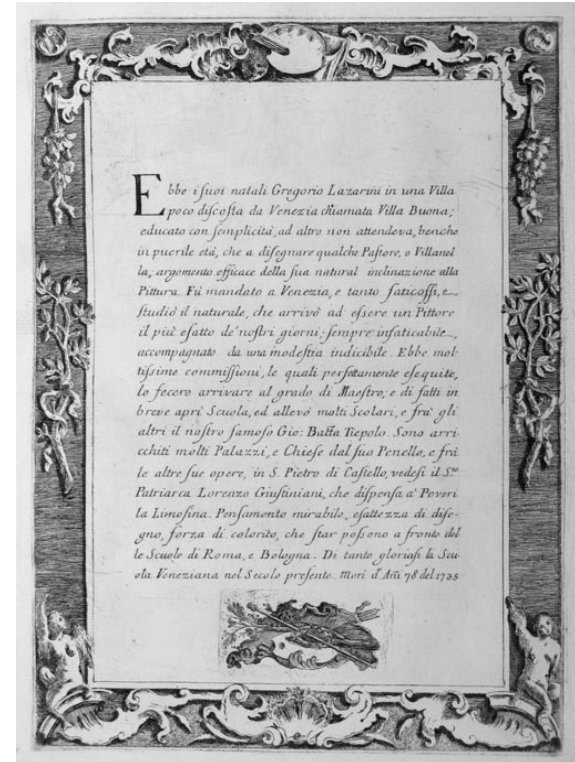 Ebbe i ſuoi natali Gregorio Lazarini in una Villa
poco diſcoſta da Venezia chiamata Villa Buona;
educato con ſemplicità, ad altro non attendeva, benche
in puerile età, che a diſegnare qualche Paſtore, o Villanel
la; argomento efficace della ſua natural inclinazione alla
Pittura. Fù mandato a Venezia, e tanto faticoſſi, e
ſtudiò il naturale, che arrivò ad eſsere un Pittore
il più eſatto de' noſtri giorni; ſempre infaticabile,
accompagnato da una modeſtia indicibile. Ebbe mol-
tiſsime commiſſioni, le quali perfettamente eſequite,
lo fecero arrivare al grado di Maeſtro; e di fatti in
breve aprì Scuola, ed allevò molti Scolari, e frà gli
altri il noſtro famoſo Gio: Batta Tiepolo. Sono arri-
cchiti molti Palazzi, e Chieſe dal ſuo Penello, e frà
le altre ſue opere, in S. Pietro di Caſtello, vedeſi il S.to
Patriarca Lorenzo Giuſtiniani, che diſpenſa a' Poveri
la Limoſina. Penſamento mirabile, eſattezza di diſe-
gno, forza di colorito, che ſtar poſsono a fronte del
le Scuole di Roma, e Bologna. Di tanto glorіaſi la Scu-
ola Veneziana nel Secolo preſente. Morì d' Añi 78 del 1735